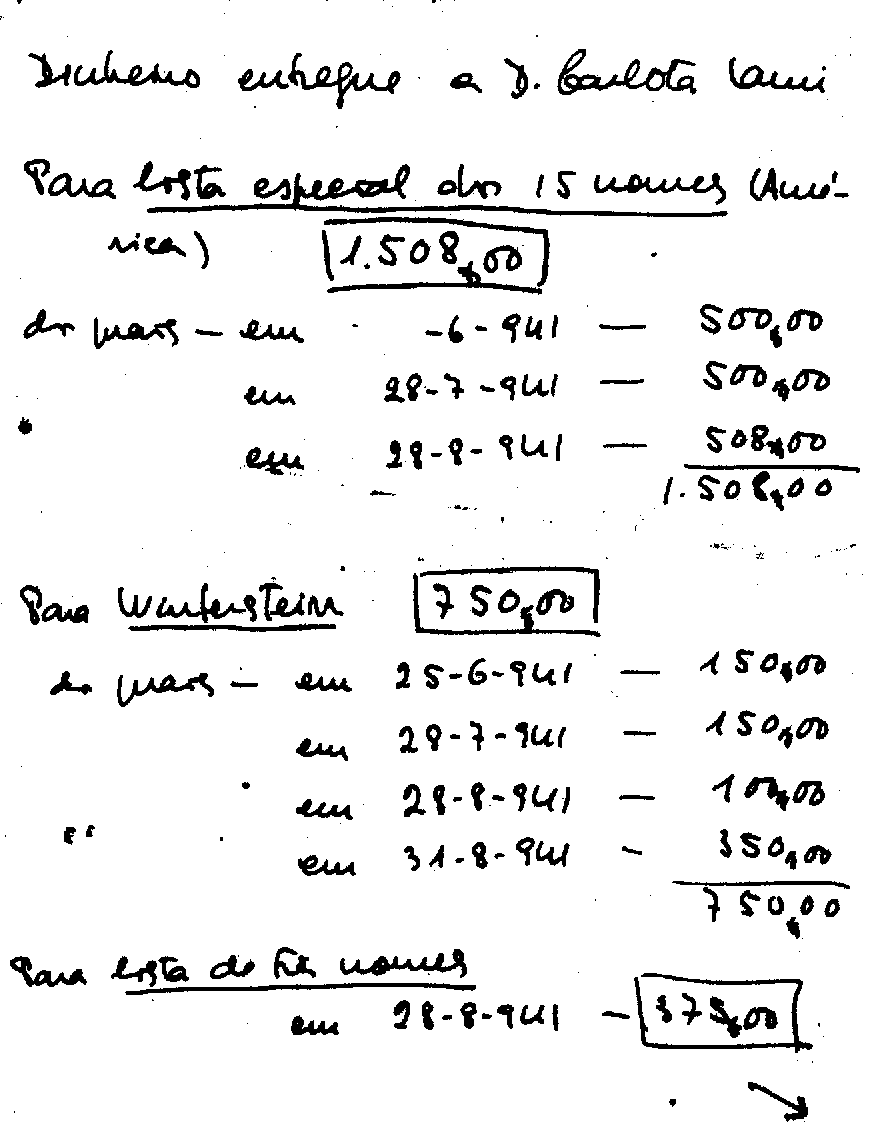 Dinheiro entregue a D. Carlota Lami
Para lista especial dos 15 nomes (Amé-
rica) 1.508$00
do mais — em -6-941 — 500$00
em 28-7-941 — 500$00
em 28-8-941 — 508$00
1.508$00
Para Wartenstein 750$00
do mais — em 25-6-941 — 150$00
em 28-7-941 — 150$00
em 28-8-941 — 100$00
em 31-8-941 - 350$00
750$00
Para lista de três nomes
em 28-8-941 - 375$00